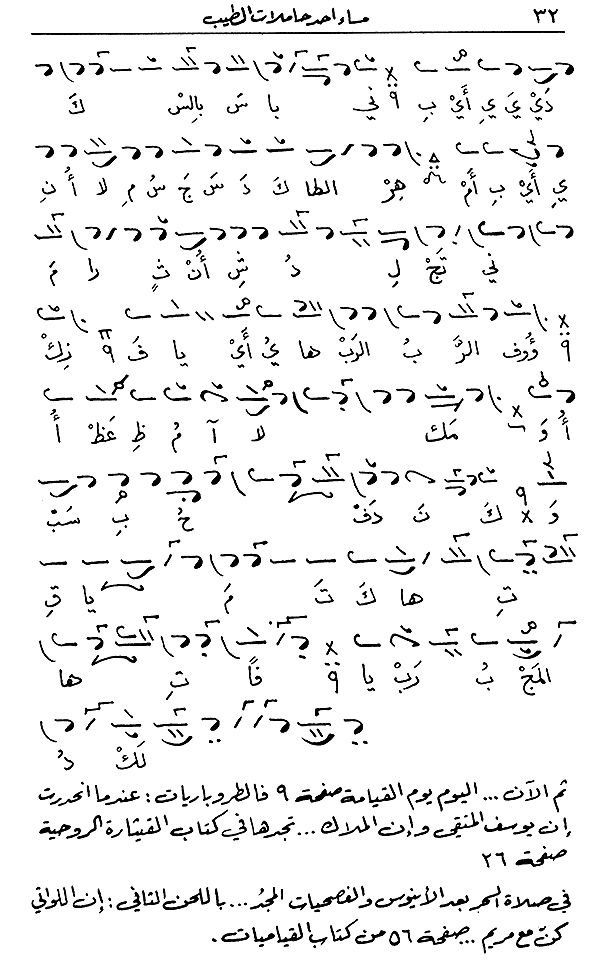 مساء احد حاملات الطيب ٣٢
دَيْ يَ يِ أَيْ بِ ٩ ني با سَ بِالسْ كَ
يِ أَيْ بِ أَمْ هِرْ الطا كَ دَ سَ جَ سُ مِ لا أُ نِ
ني تَجْ لِ دُ شِ أُنْ ثٍ را مَ
٩ وُوف الرَّ بُ الرَبْ ها يُ أَيْ يا فَ ٩ زِكْ
أُ وَ مَكَ لا آ مُ ظِ عَظْ أُ
وَ كَ نَ دَفْ حُ بِ سَبْ
تِ ها كَ تَ مَ يا قِ
المَجْ بُ رَبْ يا ٩ فاً تِ ها
لَكْ دُ
ثم الآن ... اليوم يوم القيامة صفحة ٩ فالطروباريات : عندما انحدرت
إن يوسف المتقي وإن الملاك ... تجدها في كتاب القيثارة الروحية
صفحة ٢٦
في صلاة السحر بعد الأينوس والفصحيات المجدُ ... باللحن الثاني : إن اللواتي
كنّ مع مريم ... صفحة ٥٦ من كتاب القياميات .